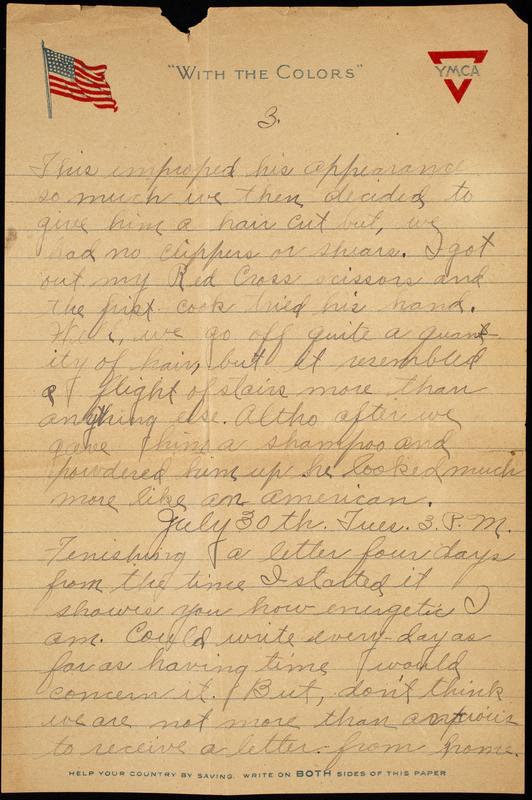 "WITH THE COLORS"
YMCA
3.
This improved his appearance
so much we then decided to
give him a hair cut but, we
had no clippers or shears. I got
out my Red Cross scissors and
the first cook tried his hand.
Well, we go off quite a quant-
ity of hair, but it resembled
a flight of stairs more than
anything else. Altho after we
gave him a shampoo and
powdered him up he looked much
more like an american.
July 30th. Tues. 3. P. M.
Fenishing a letter four days
from the time I started it
shows you how energetic I
am. Could write every-day as
far as having time would
concern it. But, don't think
we are not more than anxious
to receive a letter-from home.
HELP YOUR COUNTRY BY SAVING. WRITE ON BOTH SIDES OF THIS PAPER